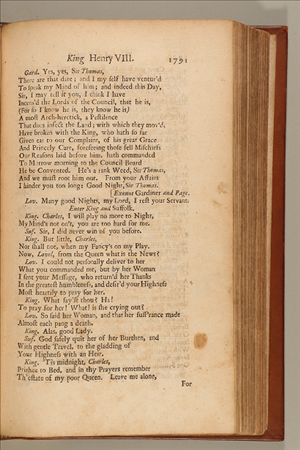 King Henry VIII. 1791
Gard. Yes, yes, Sir Thomas,
There are that dare; and I my self have ventur'd
To speak my Mind of him; and indeed this Day,
Sir, I may tell it you, I think I have
Incens'd the Lords of the Council, that he is,
(For so I know he is, they know he is)
A most Arch-heretick, a Pestilence
That does infect the Land; with which they mov'd,
Have broken with the King, who hath so far
Given ear to our Complaint, of his great Grace
And Princely Care, foreseeing those fell Mischiefs
Our Reasons laid before him, hath commanded
To Morrow morning to the Council Board
He be Convented. He's a rank Weed, Sir Thomas,
And we must root him out. From your Affairs
I hinder you too long: Good Night, Sir Thomas.
[Exeunt Gardiner and Page.
Lov. Many good Nights, my Lord, I rest your Servant.
Enter King and Suffolk.
King. Charles, I will play no more to Night,
My Mind's not on't, you are too hard for me.
Suf. Sir, I did never win of you before.
King. But little, Charles,
Nor shall not, when my Fancy's on my Play.
Now, Lovel, from the Queen what is the News?
Lov. I could not personally deliver to her
What you commanded me, but by her Woman
I sent your Message, who return'd her Thanks
In the greatest humbleness, and desir'd your Highness
Most heartily to pray for her.
King. What say'st thou? Ha!
To pray for her! What! is she crying out?
Lov. So said her Woman, and that her suff'rance made
Almost each pang a death.
King. Alas, good Lady.
Suf. God safely quit her of her Burthen, and
With gentle Travel, to the gladding of
Your Highness with an Heir.
King. 'Tis midnight, Charles,
Prithee to Bed, and in thy Prayers remember
Th' estate of my poor Queen. Leave me alone,
For